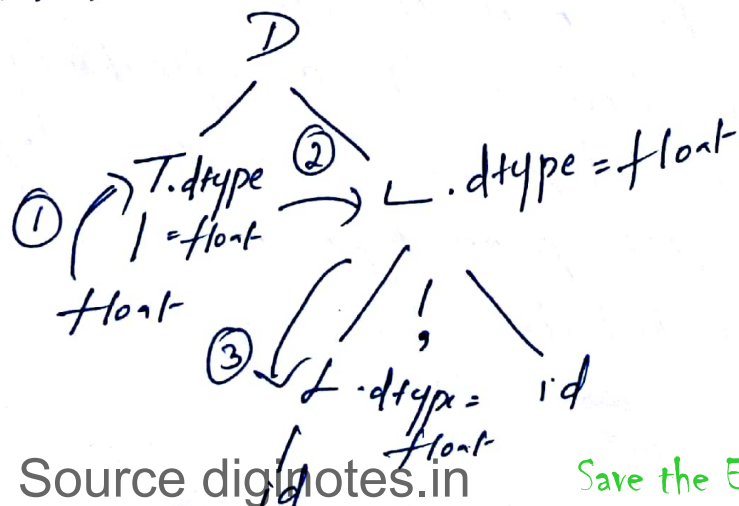 D
① T.dtype ② L.dtype = float
= float
float
③ L.dtype = id
float
id
,
Source diginotes.in Save the E